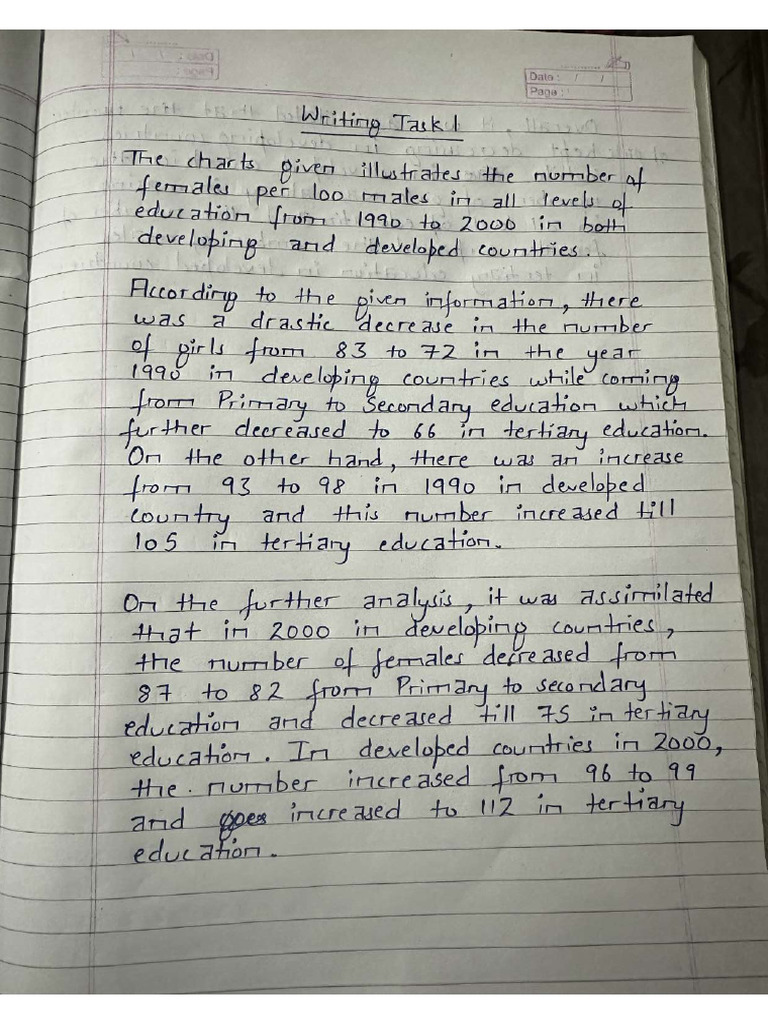 Date : / /
Page :
Writing Task 1
The charts given illustrates the number of
females per 100 males in all levels of
education from 1990 to 2000 in both
developing and developed countries.
According to the given information, there
was a drastic decrease in the number
of girls from 83 to 72 in the year
1990 in developing countries while coming
from Primary to Secondary education which
further decreased to 66 in tertiary education.
On the other hand, there was an increase
from 93 to 98 in 1990 in developed
country and this number increased till
105 in tertiary education.
On the further analysis, it was assimilated
that in 2000 in developing countries,
the number of females decreased from
87 to 82 from Primary to secondary
education and decreased till 75 in tertiary
education. In developed countries in 2000,
the number increased from 96 to 99
and increased to 112 in tertiary
education.